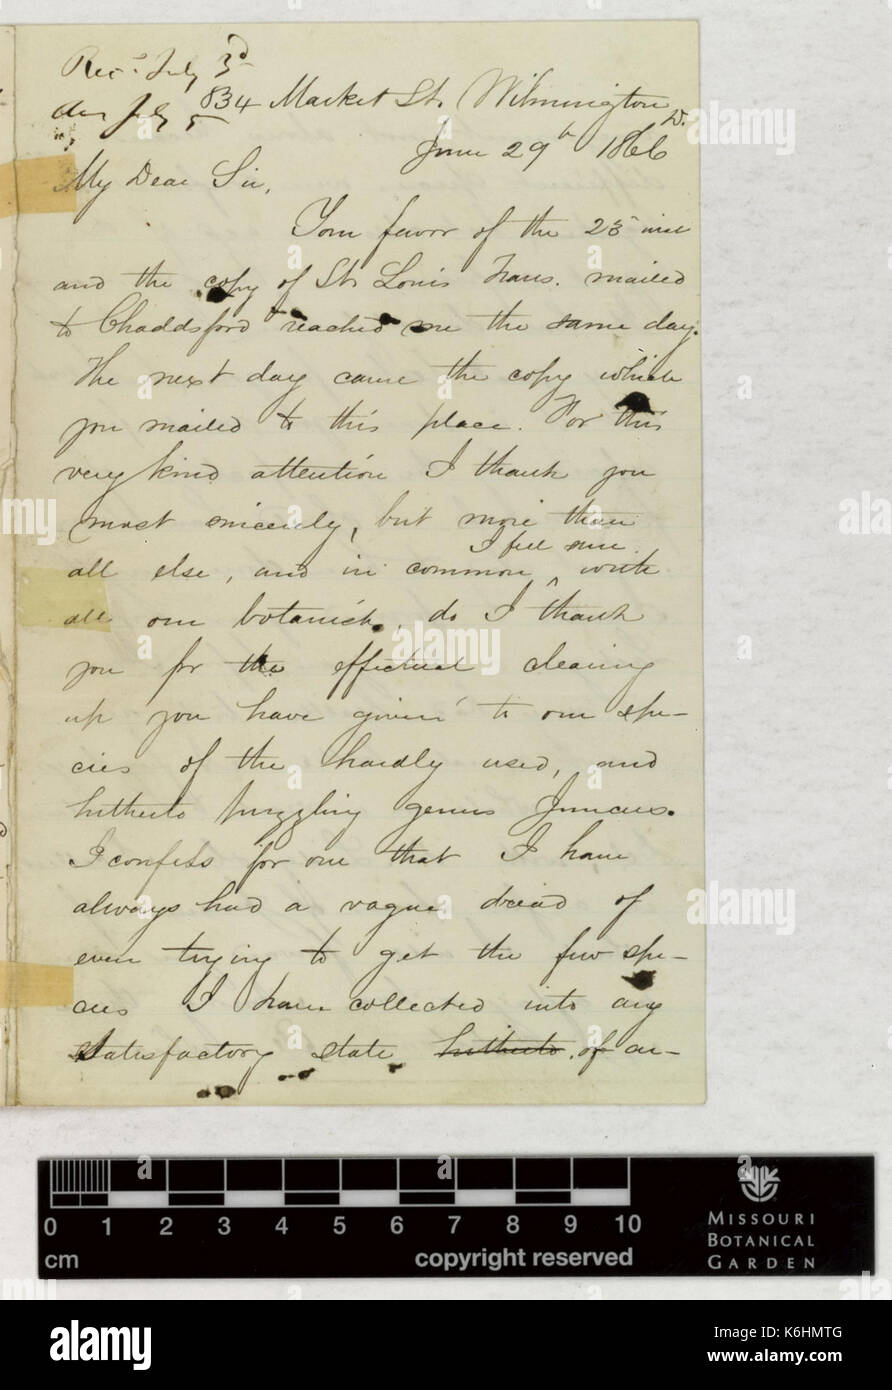 Rec.d July 3d
an July 5
834 Market St. Wilmington
D.
June 29th 1866
My Dear Sir,
Your favor of the 25 inst
and the copy of St. Louis Trans. mailed
to Chaddsford reached me the same day.
The next day came the copy which
you mailed to this place. For this
very kind attention I thank you
most sincerely, but more than
I feel sure
all else, and in common ^ with
all our botanists, do I thank
you for the effectual clearing
up you have given to our spe-
cies of the hardly used, and
hitherto puzzling genus Juncus.
I confess for one that I have
always had a vague dread of
even trying to get the few spe-
cies I have collected into any
satisfactory state hitherto of ar-
0 1 2 3 4 5 6 7 8 9 10
cm
copyright reserved
MISSOURI
BOTANICAL
GARDEN
alamy
Image ID: K6HMTG
www.alamy.com